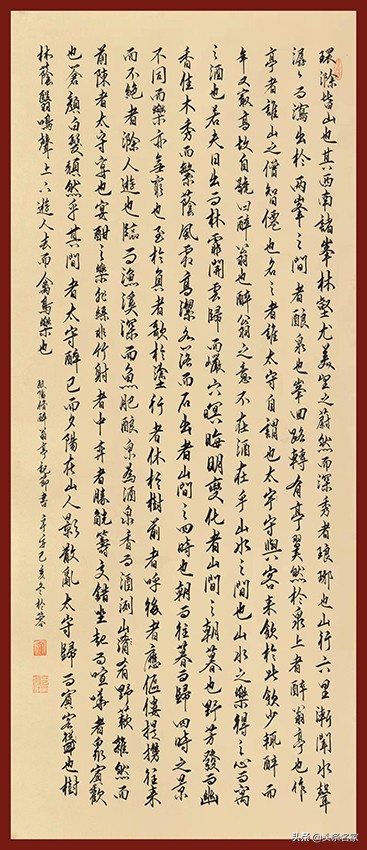 環滁皆山也其西南諸峯林壑尤美望之蔚然而深秀者琅琊也山行六里漸聞水聲
潺々而瀉出於兩峯之間者釀泉也峯回路轉有亭翼然於泉上者醉翁亭也作
亭者誰山之僧智僊也名之者誰太守自謂也太守與客來飲於此飲少輒醉而
年又最高故自號曰醉翁也醉翁之意不在酒在乎山水之間也山水之樂得之心而寓
之酒也若夫日出而林霏開雲歸而巖穴暝晦明變化者山間之朝暮也野芳發而幽
香佳木秀而繁蔭風霜高潔水落而石出者山間之四時也朝而往暮而歸四時之景
不同而樂亦無窮也至於負者歌於塗行者休於樹前者呼後者應傴僂提攜往來
而不絕者滁人遊也臨而漁溪深而魚肥釀泉為酒泉香而酒洌山肴野蔌雜然而
前陳者太守宴也宴酣之樂非絲非竹射者中弈者勝觥籌交錯坐起而喧嘩者衆賓歡
也蒼顏白髮頹然乎其間者太守醉已而夕陽在山人影散亂太守歸而賓客從也樹
林蔭翳鳴聲上下遊人去而禽鳥樂也
歐陽修醉翁亭記節書
头条@头条名家